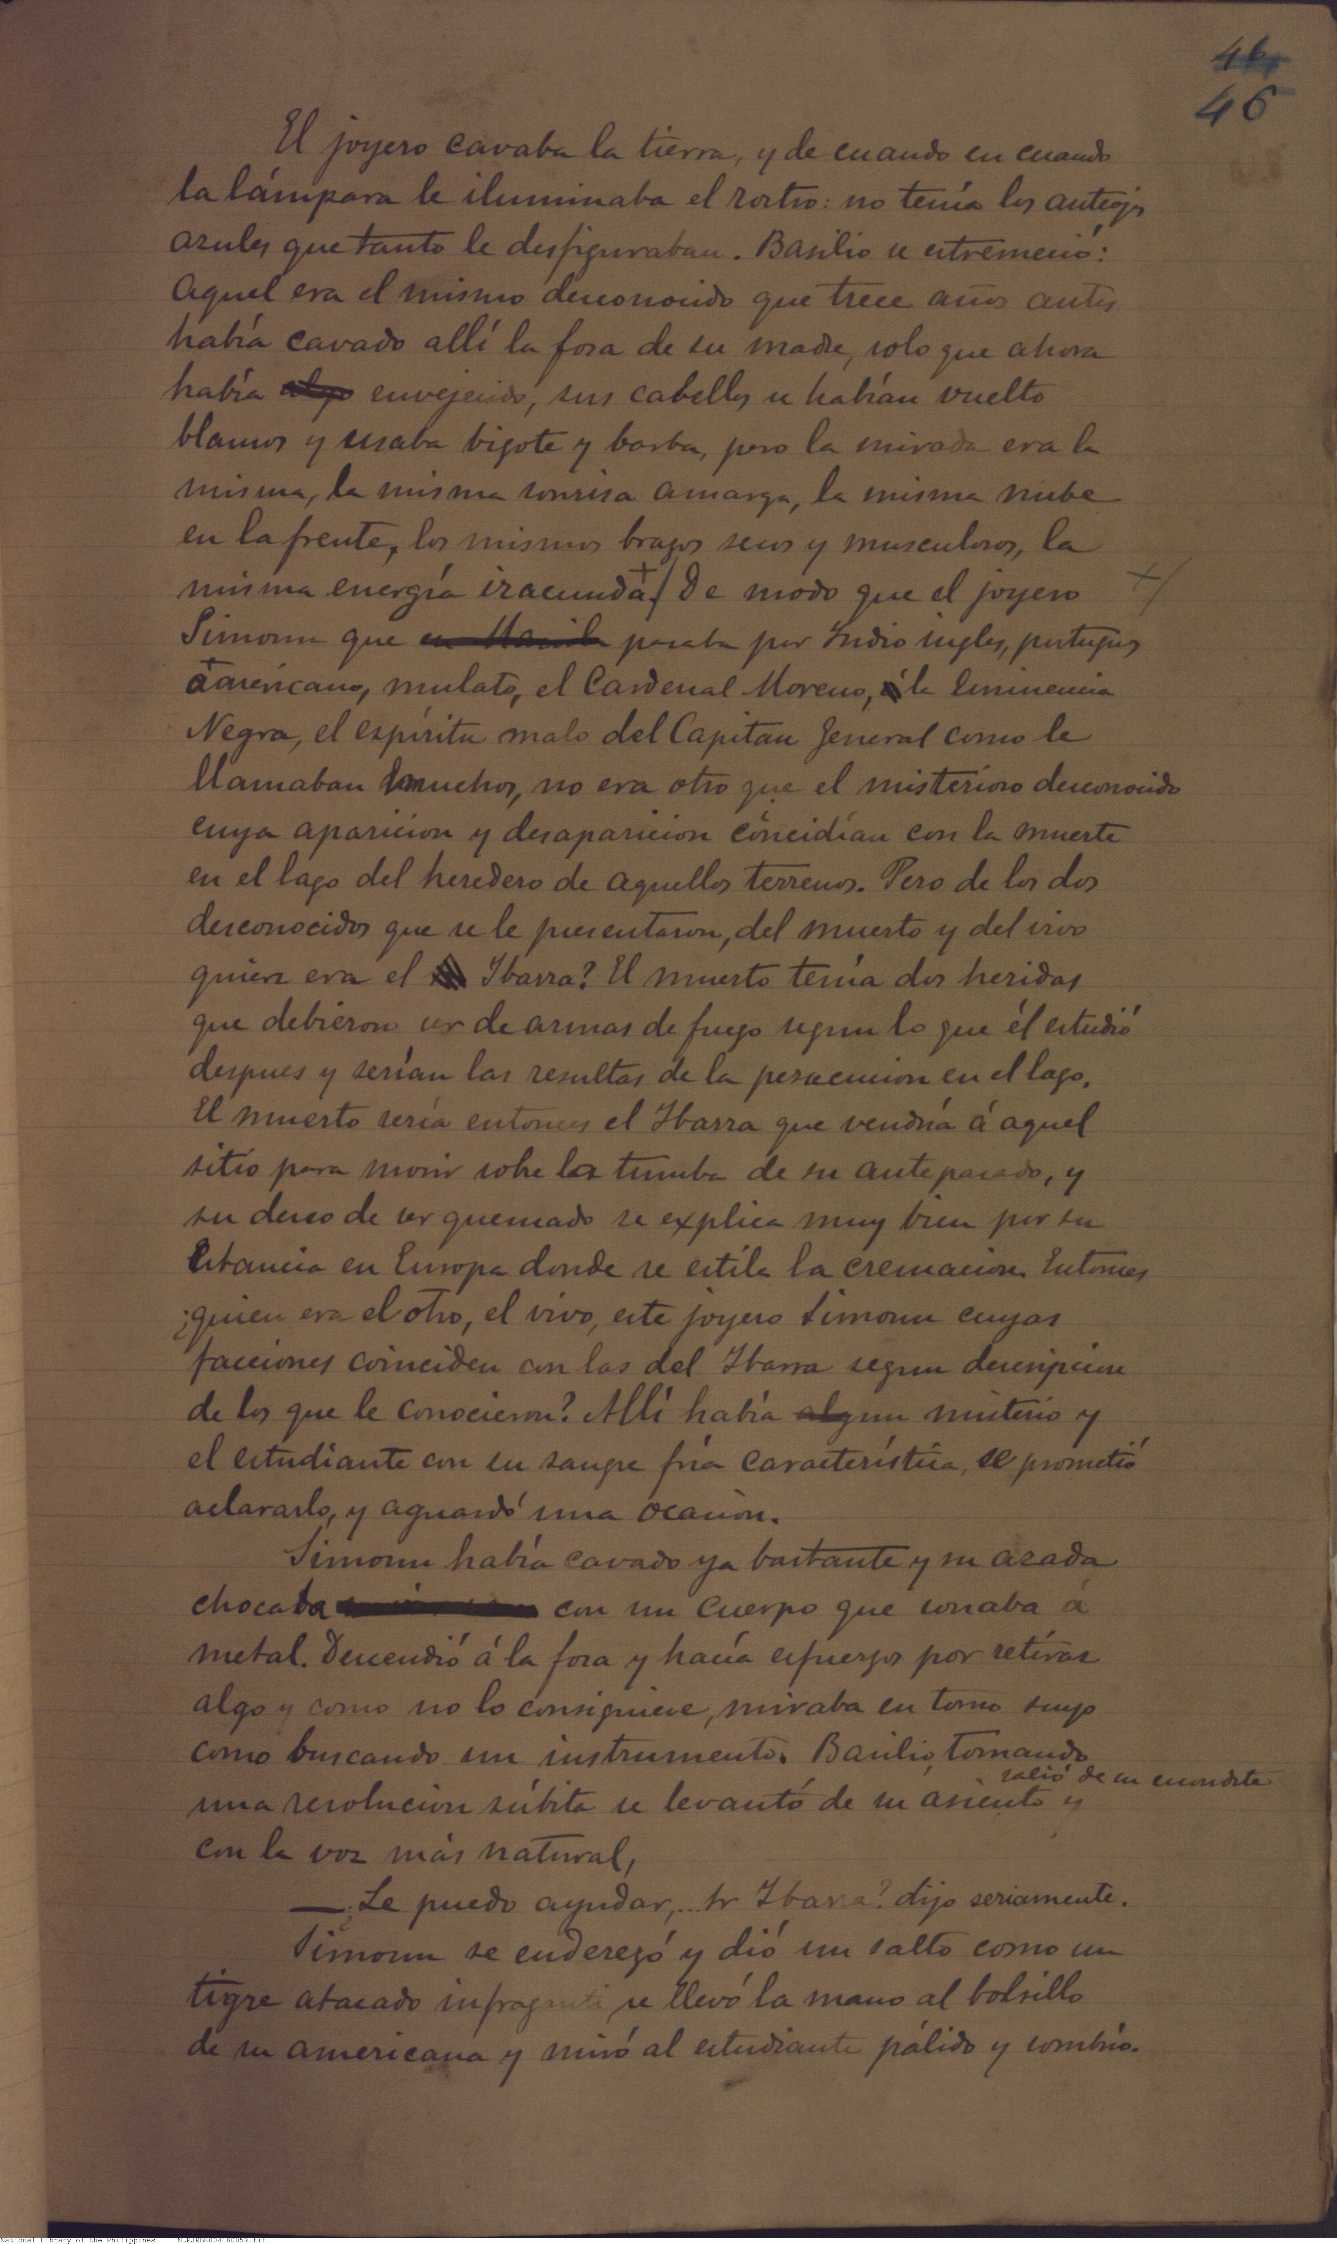 46
46
El joyero cavaba la tierra, y de cuando en cuando
la lámpara le iluminaba el rostro: no tenía los anteojos
azules que tanto le desfiguraban. Basilio se estremeció:
Aquel era el mismo desconocido que trece años antes
había cavado allí la fosa de su madre, solo que ahora
había algo envejecido, sus cabellos se habían vuelto
blancos y usaba bigote y barba, pero la mirada era la
misma, la misma sonrisa amarga, la misma nube
en la frente, los mismos brazos secos y musculosos, la
misma energía iracunda. De modo que el joyero
Simoun que en Manila pasaba por Indio ingles, portugues
americano, mulato, el Cardenal Moreno, la Eminencia
Negra, el espíritu malo del Capitan General como le
llamaban muchos, no era otro que el misterioso desconocido
cuya aparicion y desaparicion coincidían con la muerte
en el lago del heredero de aquellos terrenos. Pero de los dos
desconocidos que se le presentaron, del muerto y del vivo
quien era el Ibarra? El muerto tenía dos heridas
que debieron ser de armas de fuego segun lo que él estudió
despues y serían las resultas de la persecucion en el lago.
El muerto sería entonces el Ibarra que vendría á aquel
sitio para morir sobre la tumba de su antepasado, y
su deseo de ser quemado se explica muy bien por su
Estancia en Europa donde se estila la cremacion. Entonces
¿quien era el otro, el vivo, este joyero Simoun cuyas
facciones coinciden con las del Ibarra segun descripcion
de los que le conocieron? Allí había algun misterio y
el estudiante con su sangre fría característica, se prometió
aclararlo, y aguardó una ocasion.
Simoun había cavado ya bastante y su azada
chocaba con un cuerpo que sonaba á
metal. Descendió á la fosa y hacía esfuerzos por retirar
algo y como no lo consiguiese, miraba en torno suyo
como buscando un instrumento. Basilio, tomando
salió de su escondite
una resolucion súbita se levantó de su asiento y
con la voz más natural,
— ¿Le puedo ayudar,... Sr Ibarra? dijo seriamente.
Simoun se enderezó y dió un salto como un
tigre atacado infraganti se llevó la mano al bolsillo
de su americana y miró al estudiante pálido y sombrío.
National Library of the Philippines